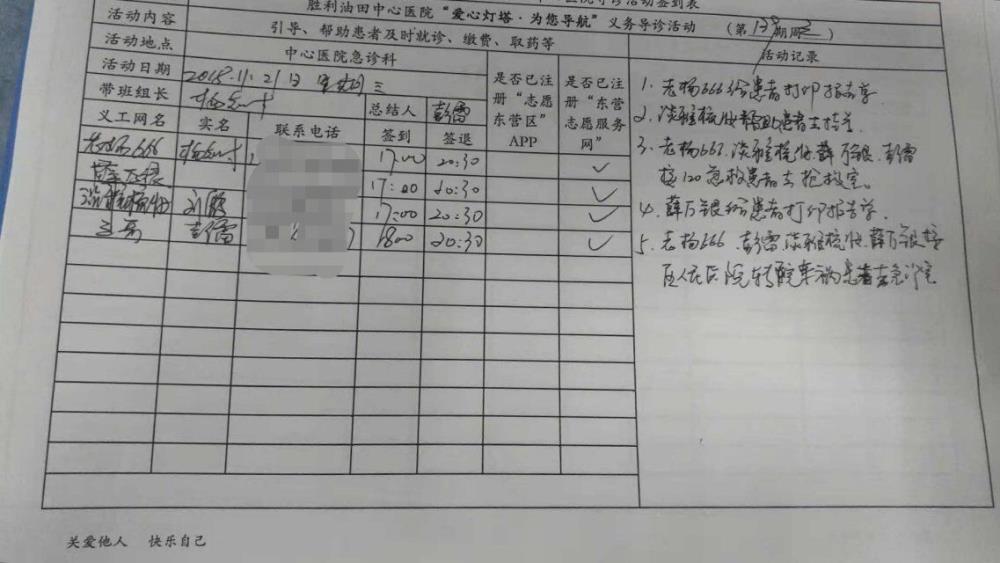 医院导诊活动签到表
活动内容 胜利油田中心医院“爱心灯塔·为您导航”义务导诊活动 (第 期周
引导、帮助患者及时就诊、缴费、取药等
活动地点 中心医院急诊科 活动记录
活动日期 2018.11.21日 星期三
带班组长 总结人 彭雷
是否已注册“志愿东营区”APP
是否已注册“东营志愿服务网”
义工网名 实名 联系电话 签到 签退
老杨666 17:00 20:30 ✓
薛万银 17:00 20:30 ✓
淡雅梳妆 17:00 20:30 ✓
彭雷 1800 20:30 ✓
1. 老杨666给患者打印报告单
2. 淡雅梳妆帮助患者去
3. 老杨666.淡雅梳妆.薛万银.彭雷
接120急救患者去抢救室。
4. 薛万银给患者打印报告单.
5. 老杨666.彭雷.淡雅梳妆.薛万银接
人民医院转院车祸患者去急诊室
关爱他人 快乐自己